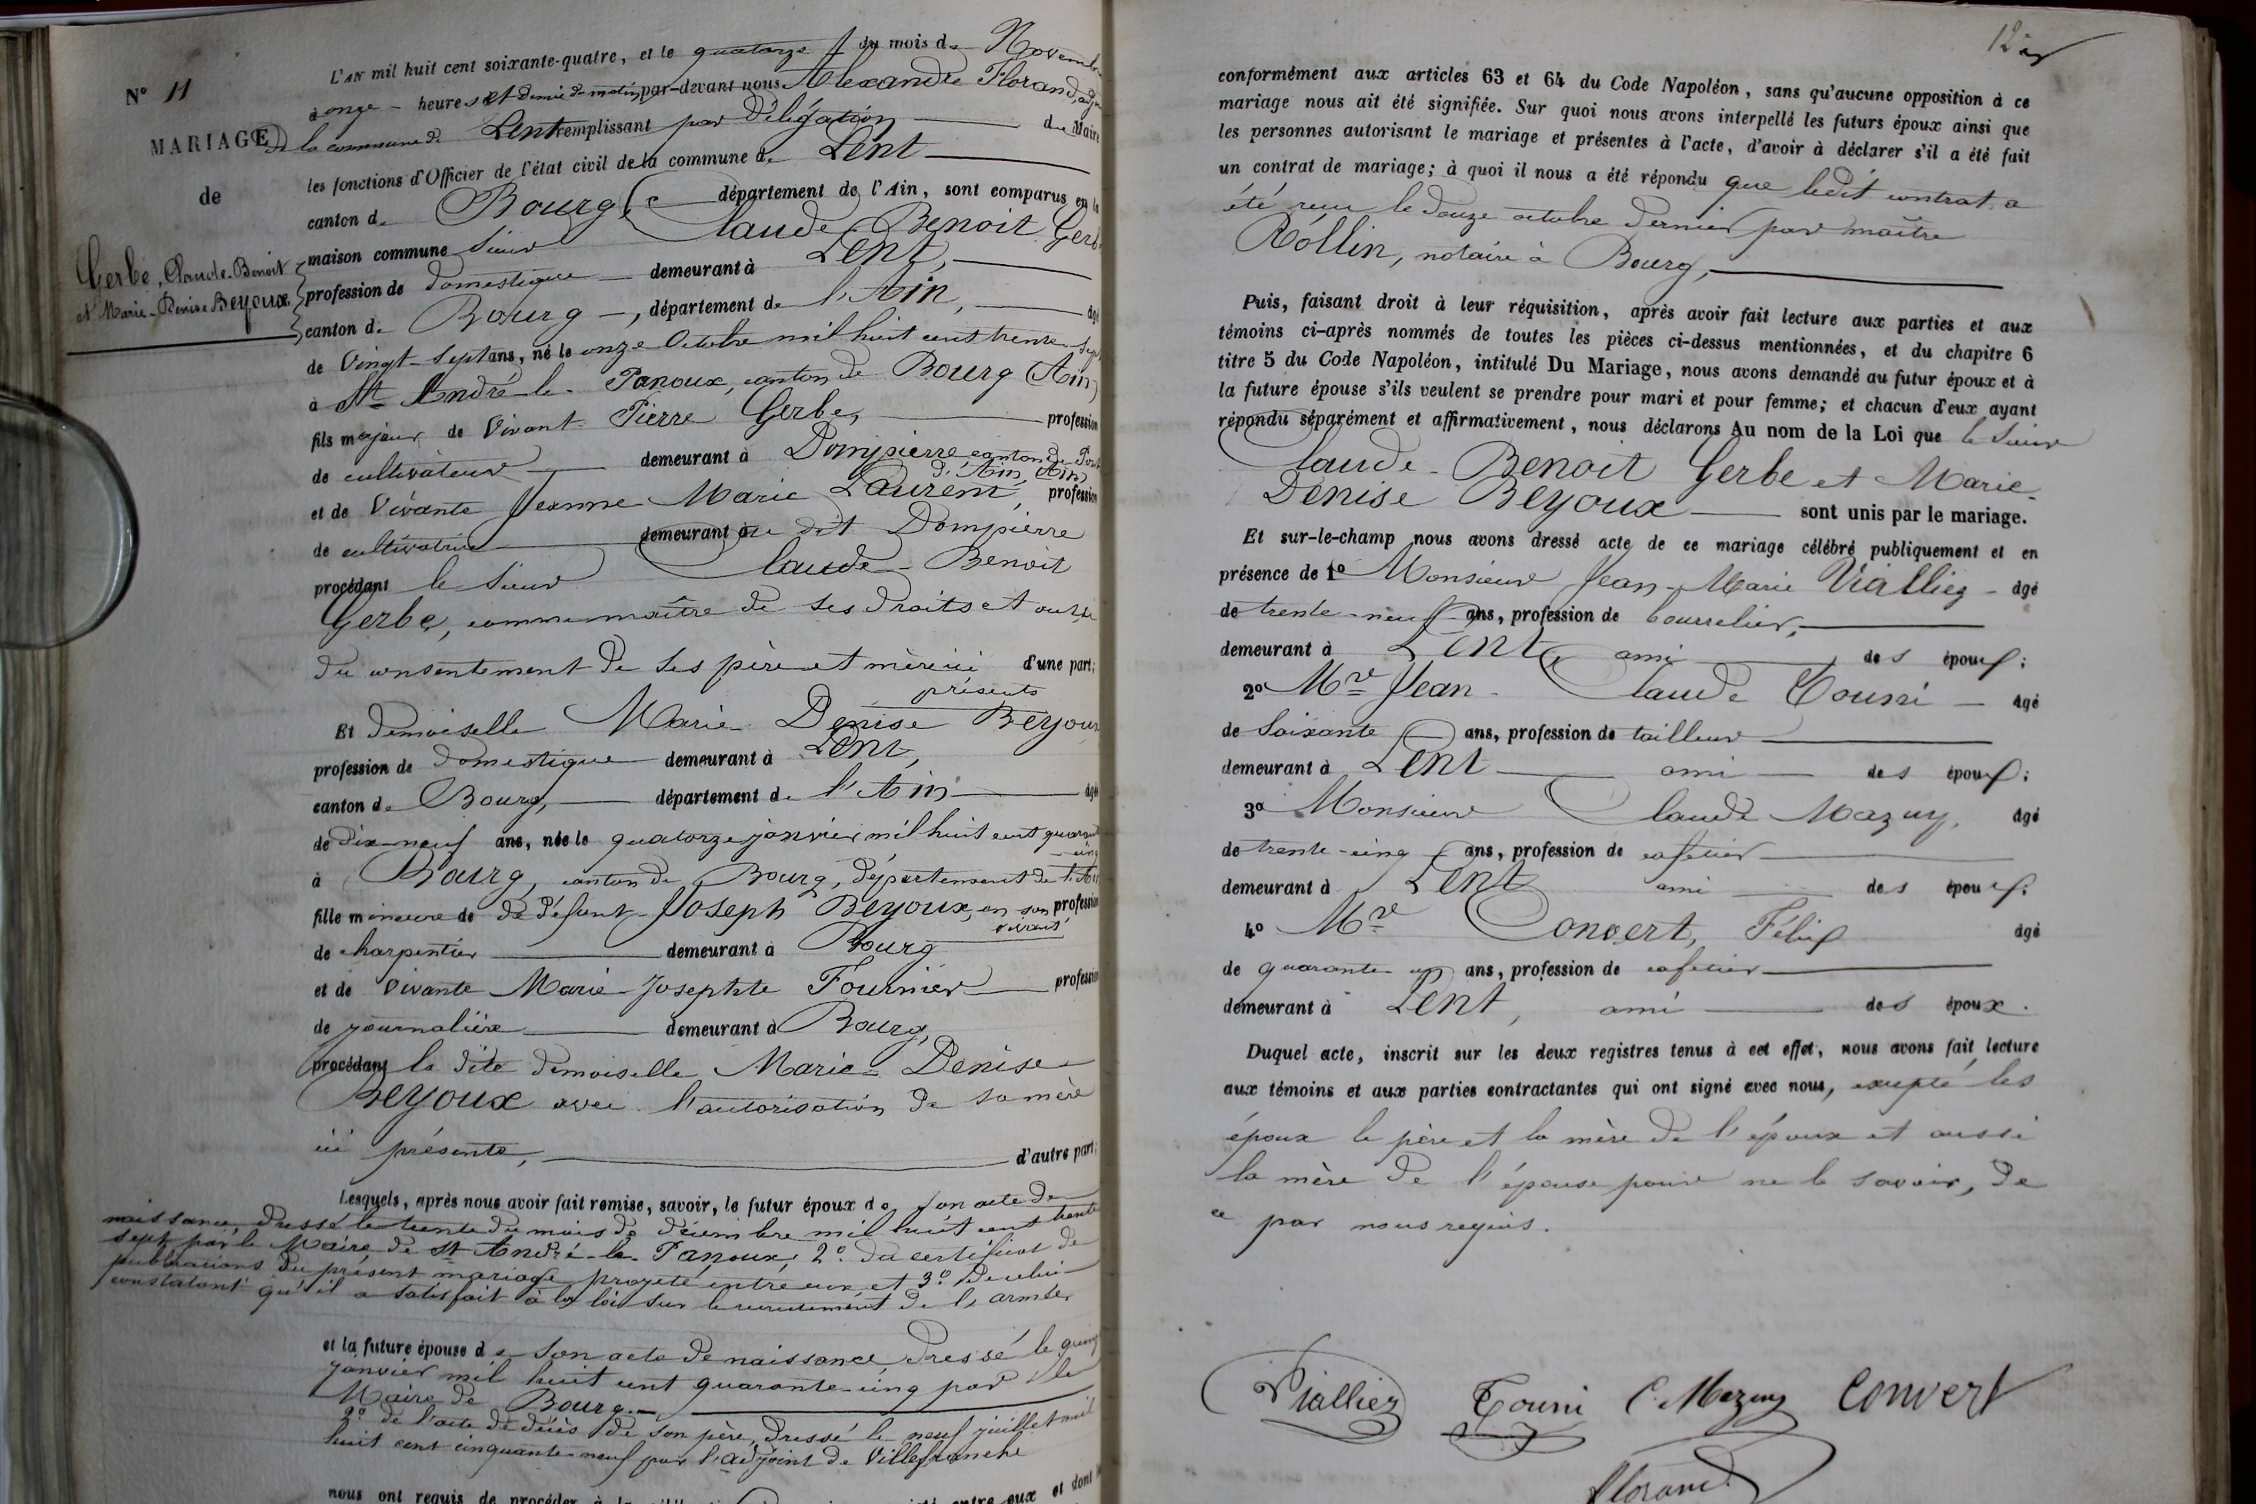 N° 11
MARIAGE
de
Gerbe, Claude-Benoit
et Marie-Denise Beyoux
L'AN mil huit cent soixante-quatre, et le quatorze du mois de Novembre
à onze heures et demie du matin, par-devant nous Alexandre Florand, adjoint
de la commune de Lent remplissant par délégation du Maire
les fonctions d'Officier de l'état civil de la commune de Lent
canton de Bourg, département de l'Ain, sont comparus en la
maison commune Sieur Claude Benoit Gerbe
profession de domestique demeurant à Lent,
canton de Bourg, département de l'Ain, âgé
de Vingt-sept ans, né le onze Octobre mil huit cent trente sept
à St André-le-Panoux, canton de Bourg (Ain)
fils majeur de Vivant Pierre Gerbe, profession
de cultivateur demeurant à Dompierre canton de Pont
d'Ain, (Ain)
et de Vivante Jeanne Marie Laurent, profession
de cultivatrice demeurant à au dit Dompierre
procédant le Sieur Claude-Benoit
Gerbe, comme maître de ses droits et outre
du consentement de ses père et mère ici d'une part;
présents
Et demoiselle Marie Denise Beyoux
profession de domestique demeurant à Lent,
canton de Bourg, département de l'Ain âgée
de dix-neuf ans, née le quatorze janvier mil huit cent quarante
cinq
à Bourg, canton de Bourg, département de l'Ain
fille mineure de défunt Joseph Beyoux, en son profession
vivant
de charpentier demeurant à Bourg
et de Vivante Marie-Josephte Fournier profession
de journalière demeurant à Bourg,
procédant la dite demoiselle Marie-Denise
Beyoux avec l'autorisation de sa mère
ici présente, d'autre part;
Lesquels, après nous avoir fait remise, savoir, le futur époux de son acte de
naissance, dressé le trente du mois de décembre mil huit cent trente
sept par le Maire de St André-le-Panoux; 2° du certificat de
publications du présent mariage projeté entre eux, et 3° de celui
constatant qu'il a satisfait à la loi sur le recrutement de l'armée
et la future épouse de son acte de naissance, dressé le quinze
janvier mil huit cent quarante-cinq par le
Maire de Bourg.
2° de l'acte de décès de son père, dressé le neuf juillet mil
huit cent cinquante-neuf par l'adjoint de Villefranche
nous ont requis de procéder à la entre eux et dont
conformément aux articles 63 et 64 du Code Napoléon, sans qu'aucune opposition à ce
mariage nous ait été signifiée. Sur quoi nous avons interpellé les futurs époux ainsi que
les personnes autorisant le mariage et présentes à l'acte, d'avoir à déclarer s'il a été fait
un contrat de mariage; à quoi il nous a été répondu que ledit contrat a
été reçu le douze octobre dernier par maître
Rollin, notaire à Bourg,
Puis, faisant droit à leur réquisition, après avoir fait lecture aux parties et aux
témoins ci-après nommés de toutes les pièces ci-dessus mentionnées, et du chapitre 6
titre 5 du Code Napoléon, intitulé Du Mariage, nous avons demandé au futur époux et à
la future épouse s'ils veulent se prendre pour mari et pour femme; et chacun d'eux ayant
répondu séparément et affirmativement, nous déclarons Au nom de la Loi que le Sieur
Claude-Benoit Gerbe et Marie-
Denise Beyoux sont unis par le mariage.
Et sur-le-champ nous avons dressé acte de ce mariage célébré publiquement et en
présence de 1° Monsieur Jean-Marie Vialliez âgé
de trente-neuf ans, profession de bourrelier,
demeurant à Lent, ami des époux;
2° Mr Jean-Claude Tourni âgé
de soixante ans, profession de tailleur
demeurant à Lent ami des époux;
3° Monsieur Claude Mazuy, âgé
de trente-cinq ans, profession de cafetier
demeurant à Lent ami des époux;
4° Mr Convert, Félix âgé
de quarante un ans, profession de cafetier
demeurant à Lent, ami des époux.
Duquel acte, inscrit sur les deux registres tenus à cet effet, nous avons fait lecture
aux témoins et aux parties contractantes qui ont signé avec nous, excepté les
époux le père et la mère de l'époux et aussi
la mère de l'épouse pour ne le savoir, de
ce par nous requis.
Vialliez Tourni C. Mazuy Convert
Florand